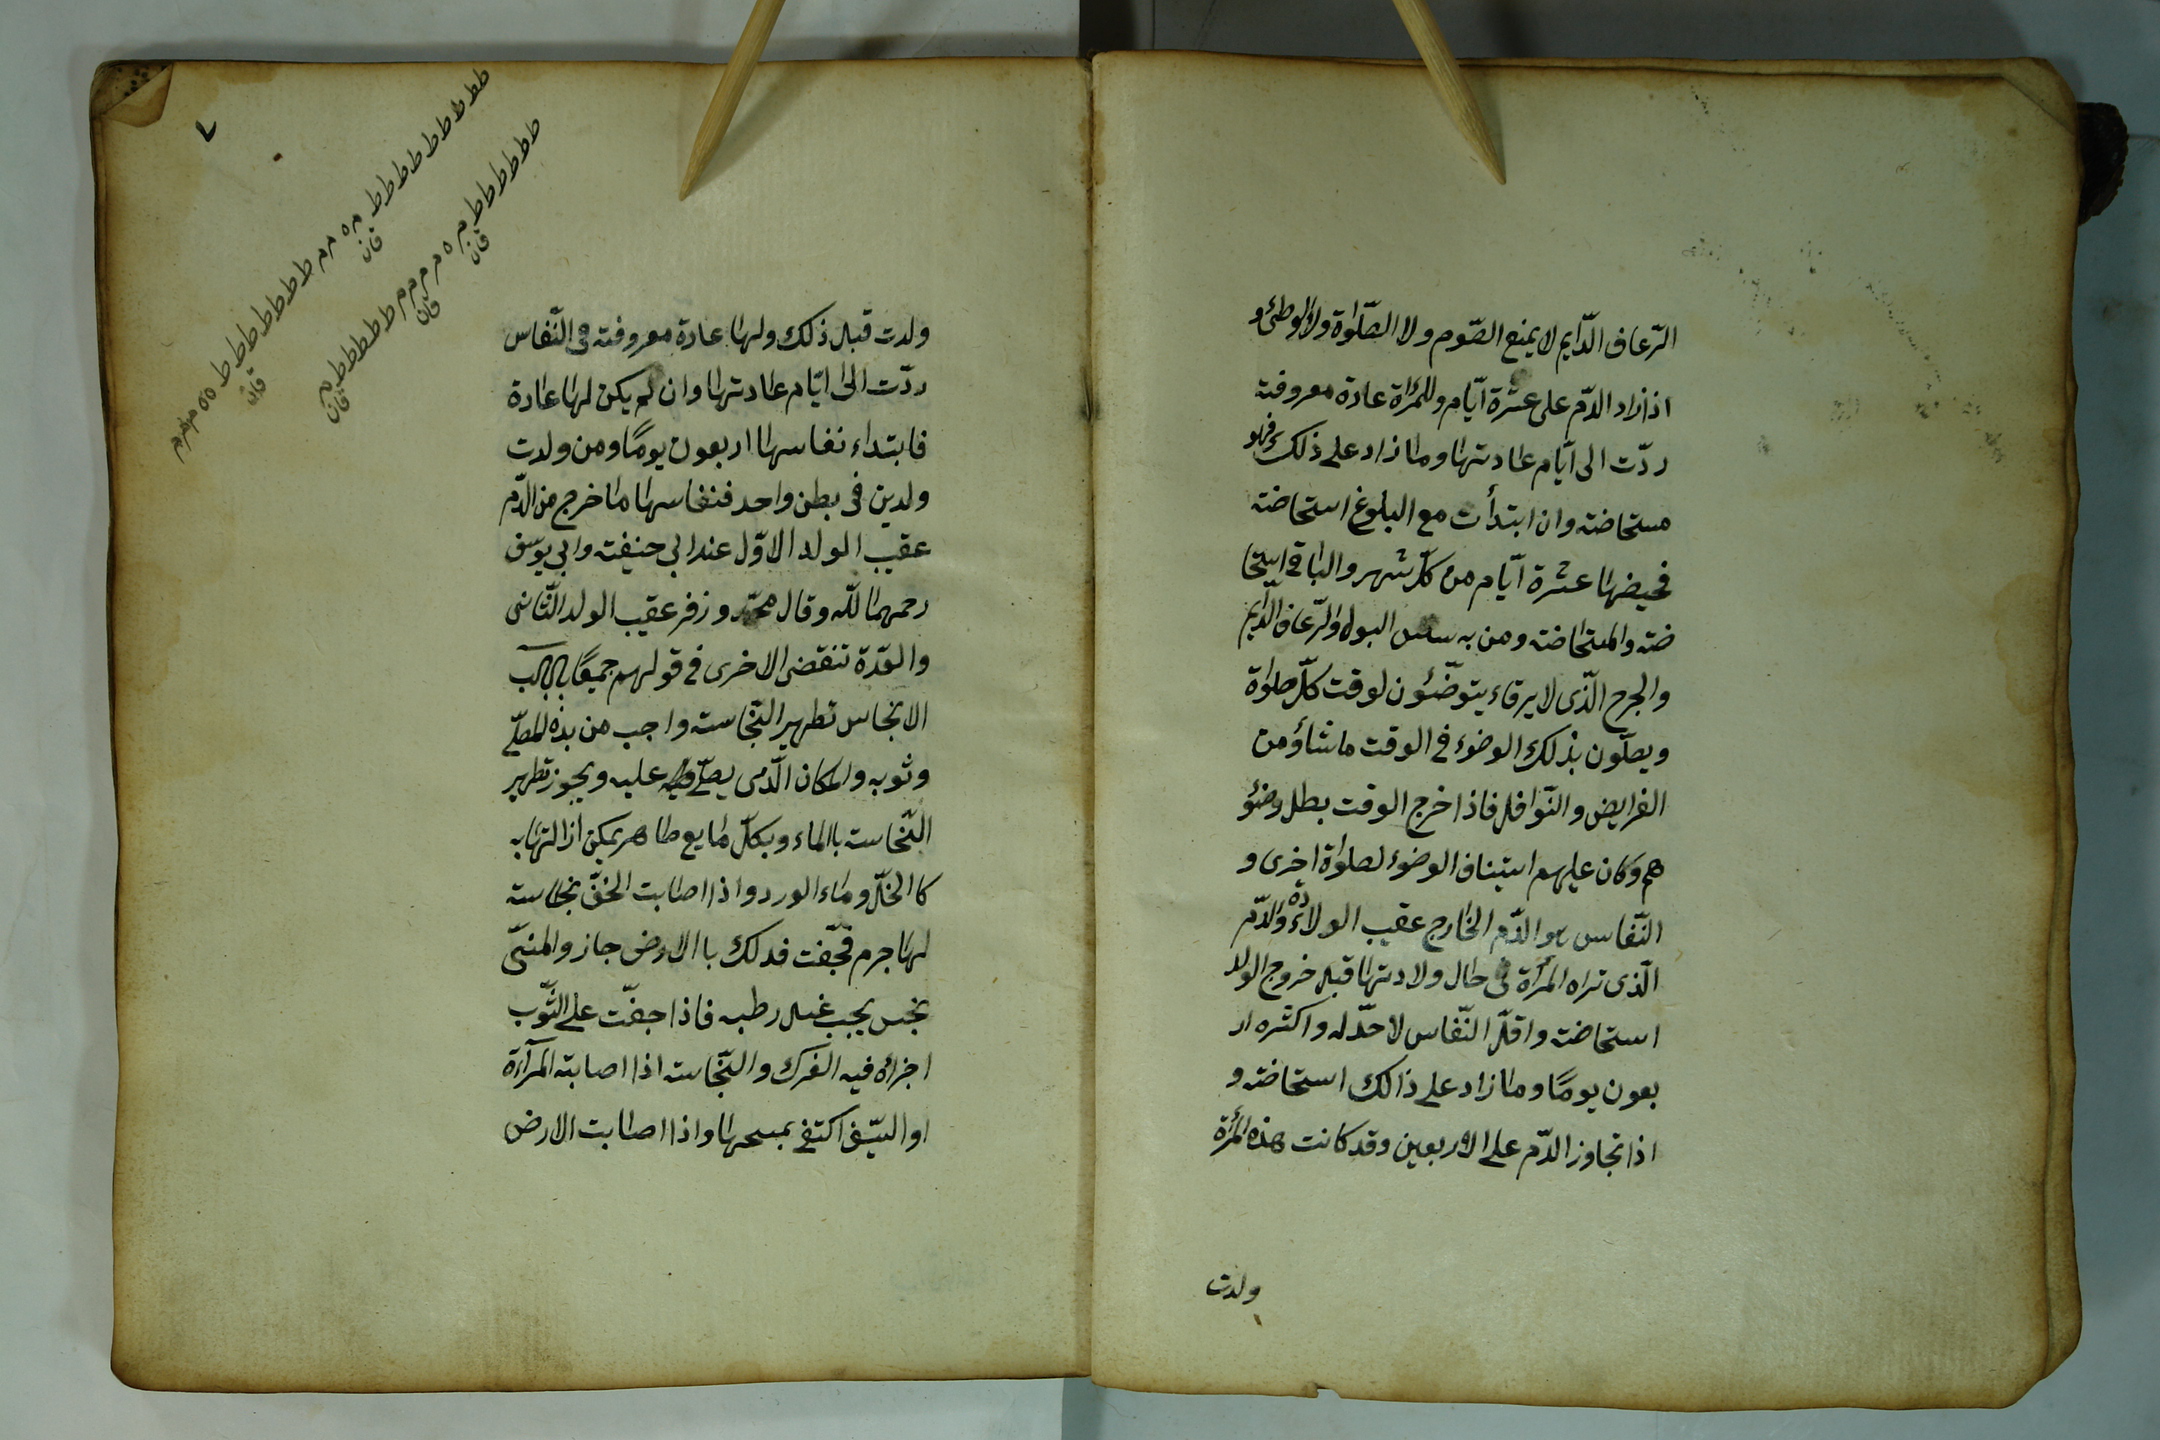 الرّعاف الدّايم لا يمنع الصّوم ولا الصّلوٰة ولا الوطئ و
اذا زاد الدّم على عشرة ايّام وللمرأة عادة معروفته
ردّت الى ايّام عادتها وما زاد على ذلك فهو
مستحاضته وان ابتدأت مع البلوغ استحاضته
فحيضها عشرة ايّام من كلّ شهر والباقى استحا
ضته والمستحاضته ومن به سلس البول والرّعاف الدّايم
والجرح الّذى لا يرقاء يتوضّئون لوقت كلّ صلوٰة
ويصلّون بذلك الوضوء فى الوقت ما شاؤ من
الفرايض والنّوافل فاذا خرج الوقت بطل وضئو
هم وكان عليهم استيناف الوضوء لصلوٰة اخرى و
النّفاس هو الدّم الخارج عقيب الولادة والدّم
الّذى تراه المرأة فى حال ولادتها قبل خروج الولد
استحاضته واقلّ النّفاس لا حدّ له واكثره ار
بعون يومًا وما زاد على ذالك استحاضته و
اذا تجاوز الدّم على الاربعين وقد كانت هذه المرأة
ولدت
ولدت قبل ذلك ولها عادة معروفته فى النّفاس
ردّت الى ايّام عادتها وان لم يكن لها عادة
فابتداء نفاسها اربعون يومًا ومن ولدت
ولدين فى بطن واحد فنفاسها ما خرج من الدّم
عقيب الولد الاوّل عند ابى حنيفته وابى يوسّف
رحمهما للّه وقال محمّد وزفر عقيب الولد الثّانى
والعدّة تنقضى الاخرى فى قولهم جميعًا باب
الانجاس تطهير النّجاسته واجب من بدنه المصلّى
وثوبه والمكان الّذى يصلّى عليه ويجوز تطهير
النّجاسته باالماء وبكلّ مايع طاهر يمكن ازالتها به
كا الخلّ وماء الورد واذا اصابت الخفّ نجاسته
لها جرم فجّفت فدلك باالارض جاز والمنىّ
نجس يجب غسل رطبه فاذا جفّت على الثّوب
اجزأه فيه الفرك والنّجاسته اذا اصابته المرآاة
اوالسيّف اكتفى بمسحها واذا اصابت الارض